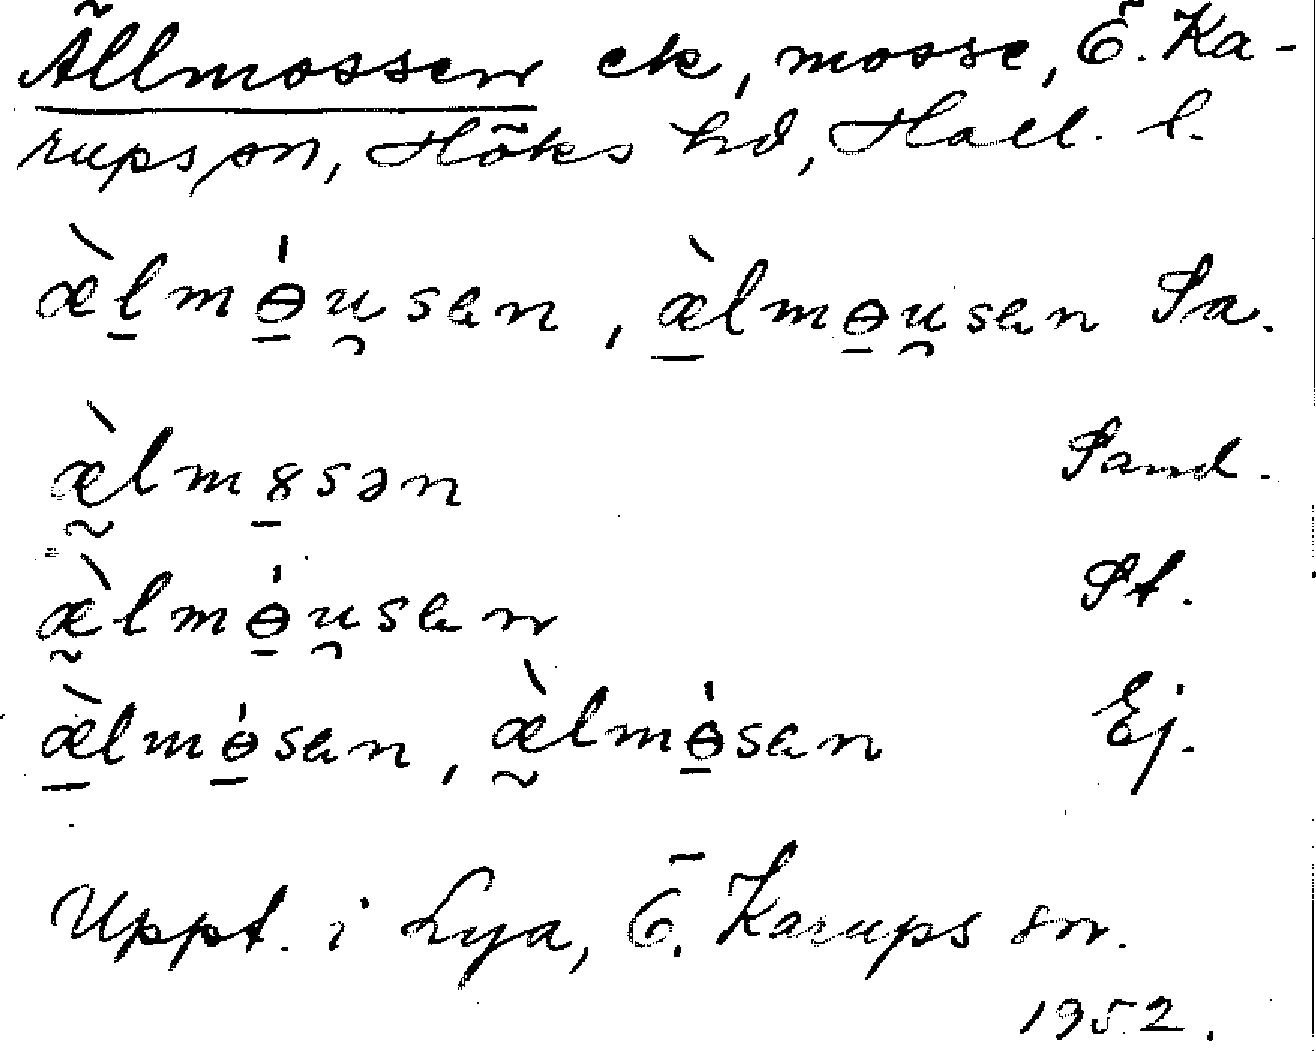 Ällmossen ek, mosse, Ö. Ka-
rups sn, Höks hd, Hall. l.
æ̀l̠mө̠́u̯san, æ̠̀lmө̠u̯san Sa.
æ̰̀lm8̠sən Sand.
æ̰̀lmө̠́u̯san St.
æ̠̀lmө̠́san, æ̰̀lmө̠́san Ej.
Uppt. i Lya, Ö. Karups sn.
1952.